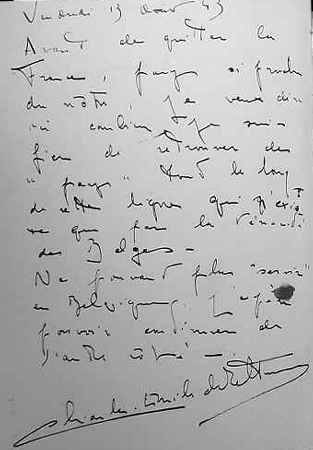 Vendredi 13 Août 43
Avant de quitter la
France, pays si proche
du nôtre, je veux dire
ici combien je suis
fier de retrouver des
"pays" tout le long
de cette ligne qui n'exis
te que par la ténacité
des Belges —
Ne pouvant plus "servir"
en Belgique, j'espère
pouvoir continuer de
l'autre côté —
Charles